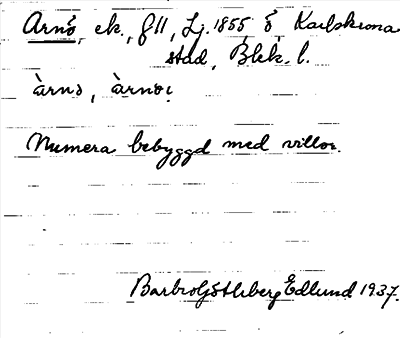 Arnö, ek., f 11, Lj. 1855, ö Karlskrona
stad, Blek. l.
àrnə, àrnɞı
Numera bebyggd med villor.
Barbro Götlberg Edlund 1937.